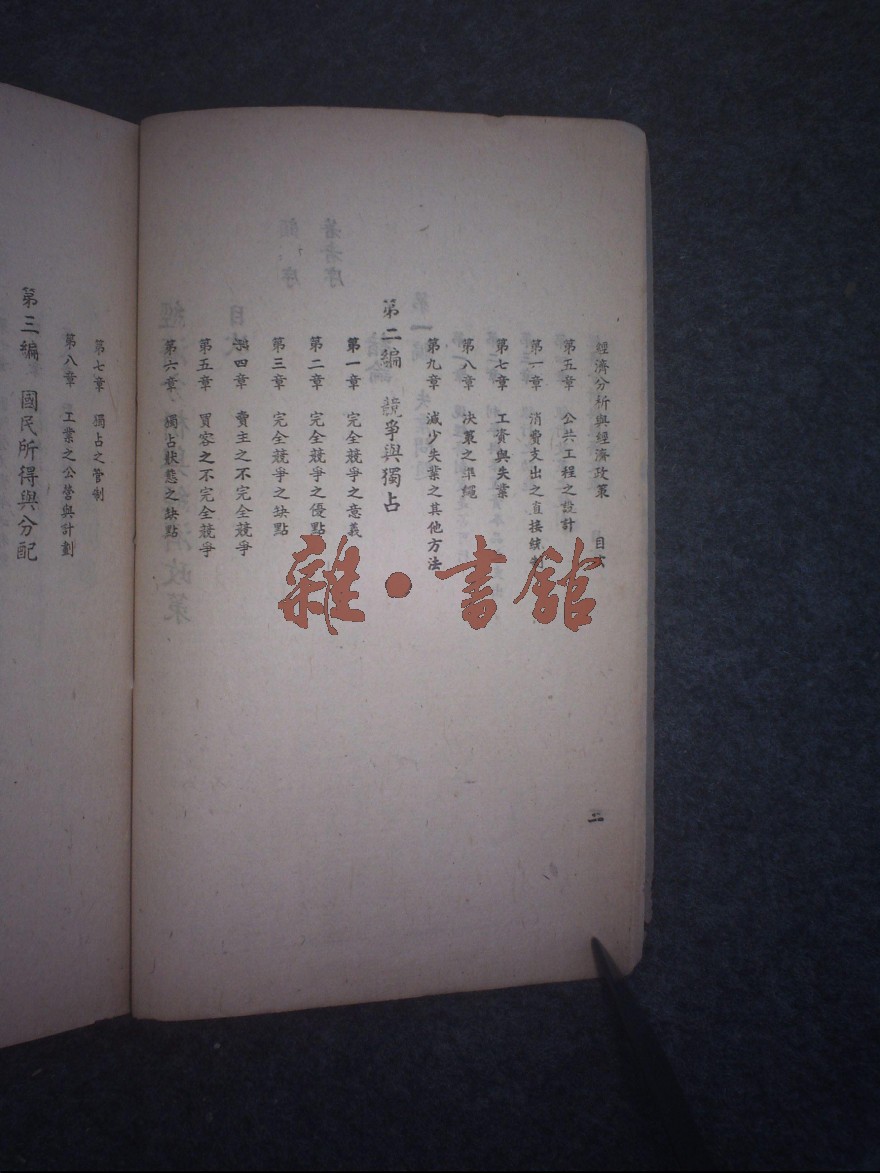 經濟分析與經濟政策 目次
二
第五章 公共工程之設計
第一章 消費支出之直接統制
第七章 工資與失業
第八章 決策之準繩
第九章 減少失業之其他方法
第二編 競爭與獨占
第一章 完全競爭之意義
第二章 完全競爭之優點
第三章 完全競爭之缺點
第四章 賣主之不完全競爭
第五章 買客之不完全競爭
第六章 獨占狀態之缺點
第七章 獨占之管制
第八章 工業之公營與計劃
第三編 國民所得與分配
雜·書館